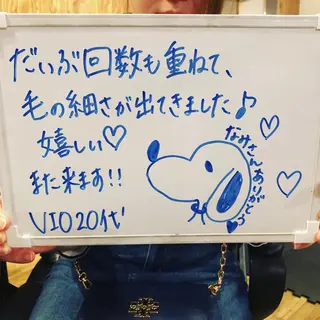 だいぶ回数も重ねて、
毛の細さが出てきました♪
嬉しい♡
また来ます!!
VIO20代
なみさんありがとう